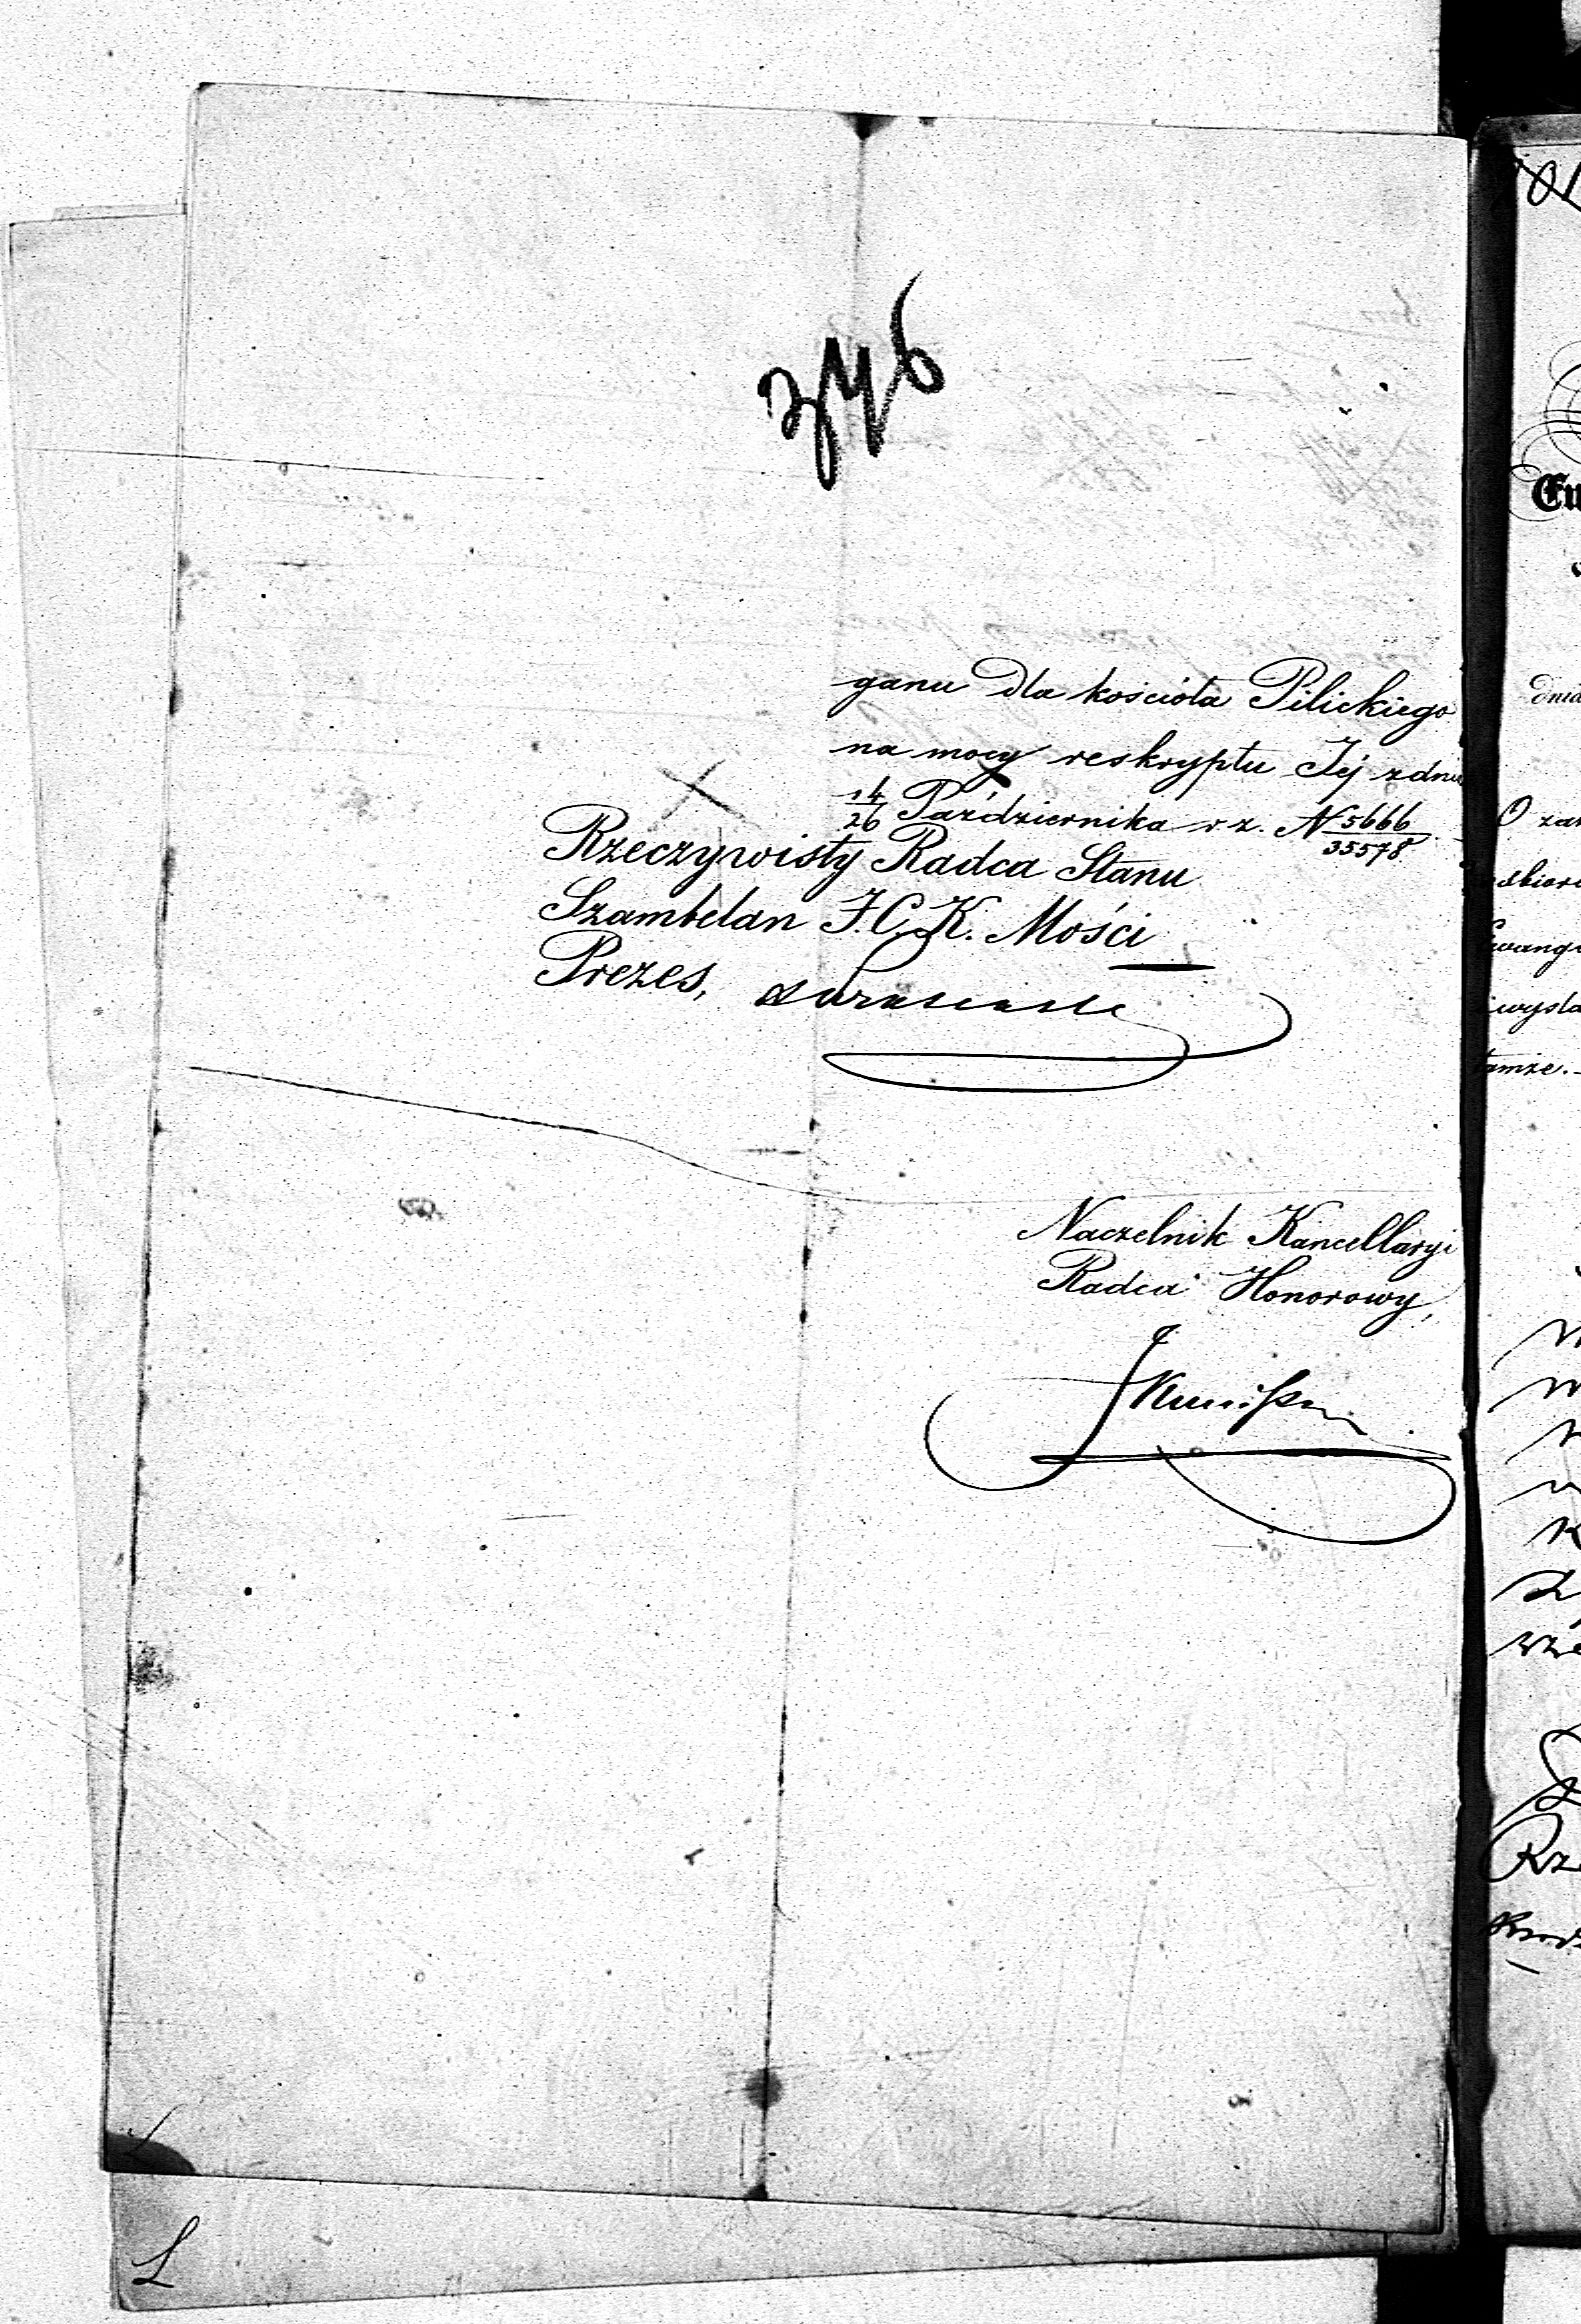 346
ganu dla kościoła Pilickiego
na mocy reskryptu Jej z dnia
14/26 Października r. z. N 5666/35578
Rzeczywisty Radca Stanu
Szambelan J.C.K. Mości
Prezes,
Naczelnik Kancellaryi
Radca Honorowy,
L
dnia
O za
tamże.